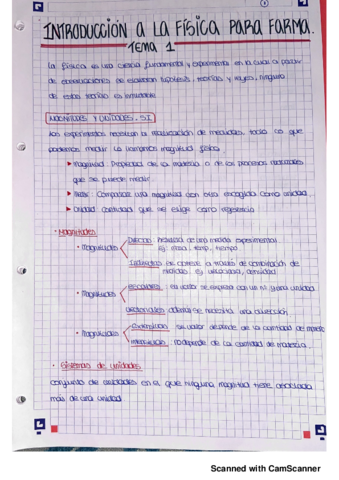 INTRODUCCIÓN A LA FÍSICA PARA FARMA.
TEMA 1
La física es una ciencia fundamental y experimental en la cual a partir
de observaciones se elaboran hipótesis, teorías y leyes, ninguna
de estas teorías es
MAGNITUDES Y UNIDADES. SI
Los experimentos necesitan la realización de medidas, todo lo que
podemos medir lo llamamos magnitud física.
Magnitud: Propiedad de la materia o de los procesos naturales
que se puede medir.
Medir: Comparar una magnitud con otra escogida como unidad.
Unidad: cantidad que se elige como referencia
• Magnitudes
• Magnitudes
Directas: Resultado de una medida experimental
Ej: masa, temp, tiempo
Indirectas: se obtiene a través de combinación de
medidas. Ej velocidad, densidad
• Magnitudes
escalares: su valor se expresa con un nº y una unidad
vectoriales: además se necesita una dirección
• Magnitudes
Extensivas: su valor depende de la cantidad de materia
Intensivas: no depende de la cantidad de materia.
• Sistemas de unidades
conjunto de unidades en el que ninguna magnitud tiene asociada
más de una unidad
Scanned with CamScanner